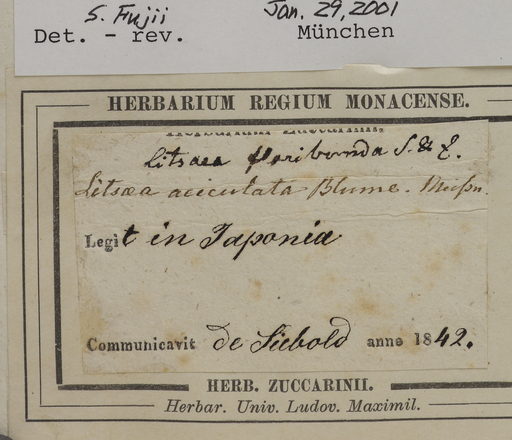 S. Fujii Jan. 29, 2001
Det. - rev. München
HERBARIUM REGIUM MONACENSE.
Herbarium Zuccarinii.
Litsaea floribunda S. & Z.
Litsæa aciculata Blume.
Legit in Japonia
Communicavit de Siebold anno 1842.
HERB. ZUCCARINII.
Herbar. Univ. Ludov. Maximil.